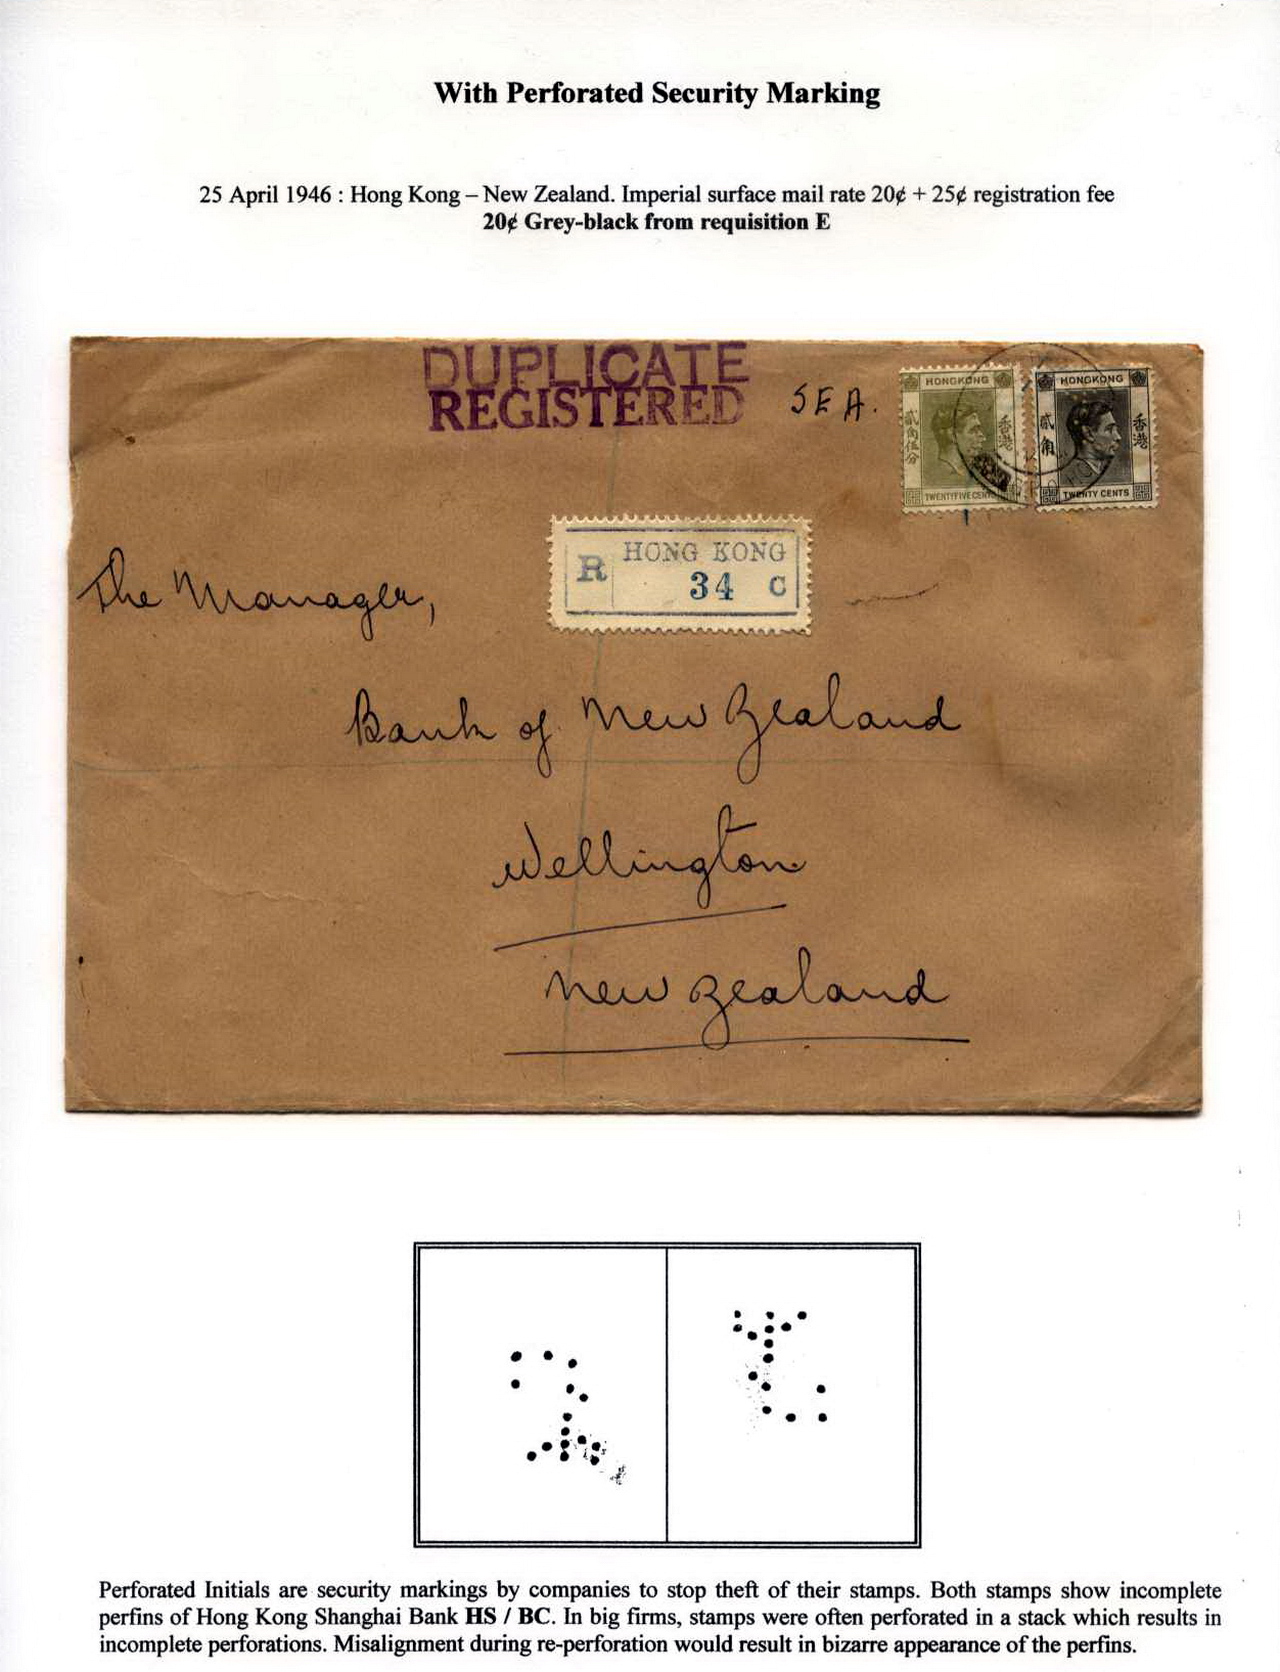 With Perforated Security Marking
25 April 1946 : Hong Kong – New Zealand. Imperial surface mail rate 20¢ + 25¢ registration fee
20¢ Grey-black from requisition E
DUPLICATE
REGISTERED
SEA.
HONGKONG
貳角伍分
香港
TWENTYFIVE CENTS
HONGKONG
貳角
香港
TWENTY CENTS
R HONG KONG
34 C
The Manager,
Bank of New Zealand
Wellington
New Zealand
Perforated Initials are security markings by companies to stop theft of their stamps. Both stamps show incomplete
perfins of Hong Kong Shanghai Bank HS / BC. In big firms, stamps were often perforated in a stack which results in
incomplete perforations. Misalignment during re-perforation would result in bizarre appearance of the perfins.